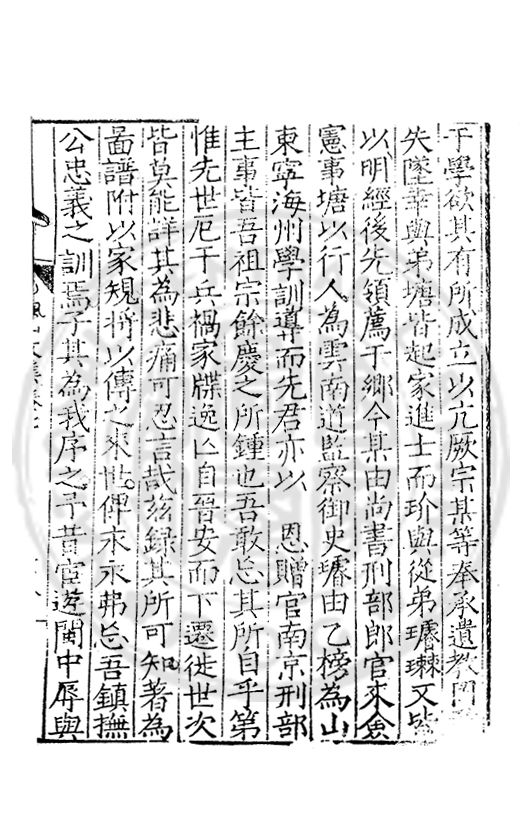 于學欲其有所成立以亢厥宗某等奉承遺教罔
失墜某與弟塘皆起家進士而玠與從弟璿璴又皆
以明經後先領薦于鄉今某由尚書刑部郎官來僉
憲事塘以行人為雲南道監察御史璿由乙榜為山
東寧海州學訓導而先君亦以　恩贈官南京刑部
主事皆吾祖宗餘慶之所鍾也吾敢忘其所自乎第
惟先世厄于兵禍家牒逸亾自晉安而下遷徙世次
皆莫能詳其為悲痛可忍言哉兹錄其所可知著為
啚譜附以家規將以傳之來世俾永永弗忘吾鎮撫
公忠義之訓焉子其為我序之予昔宦遊閩中辱與